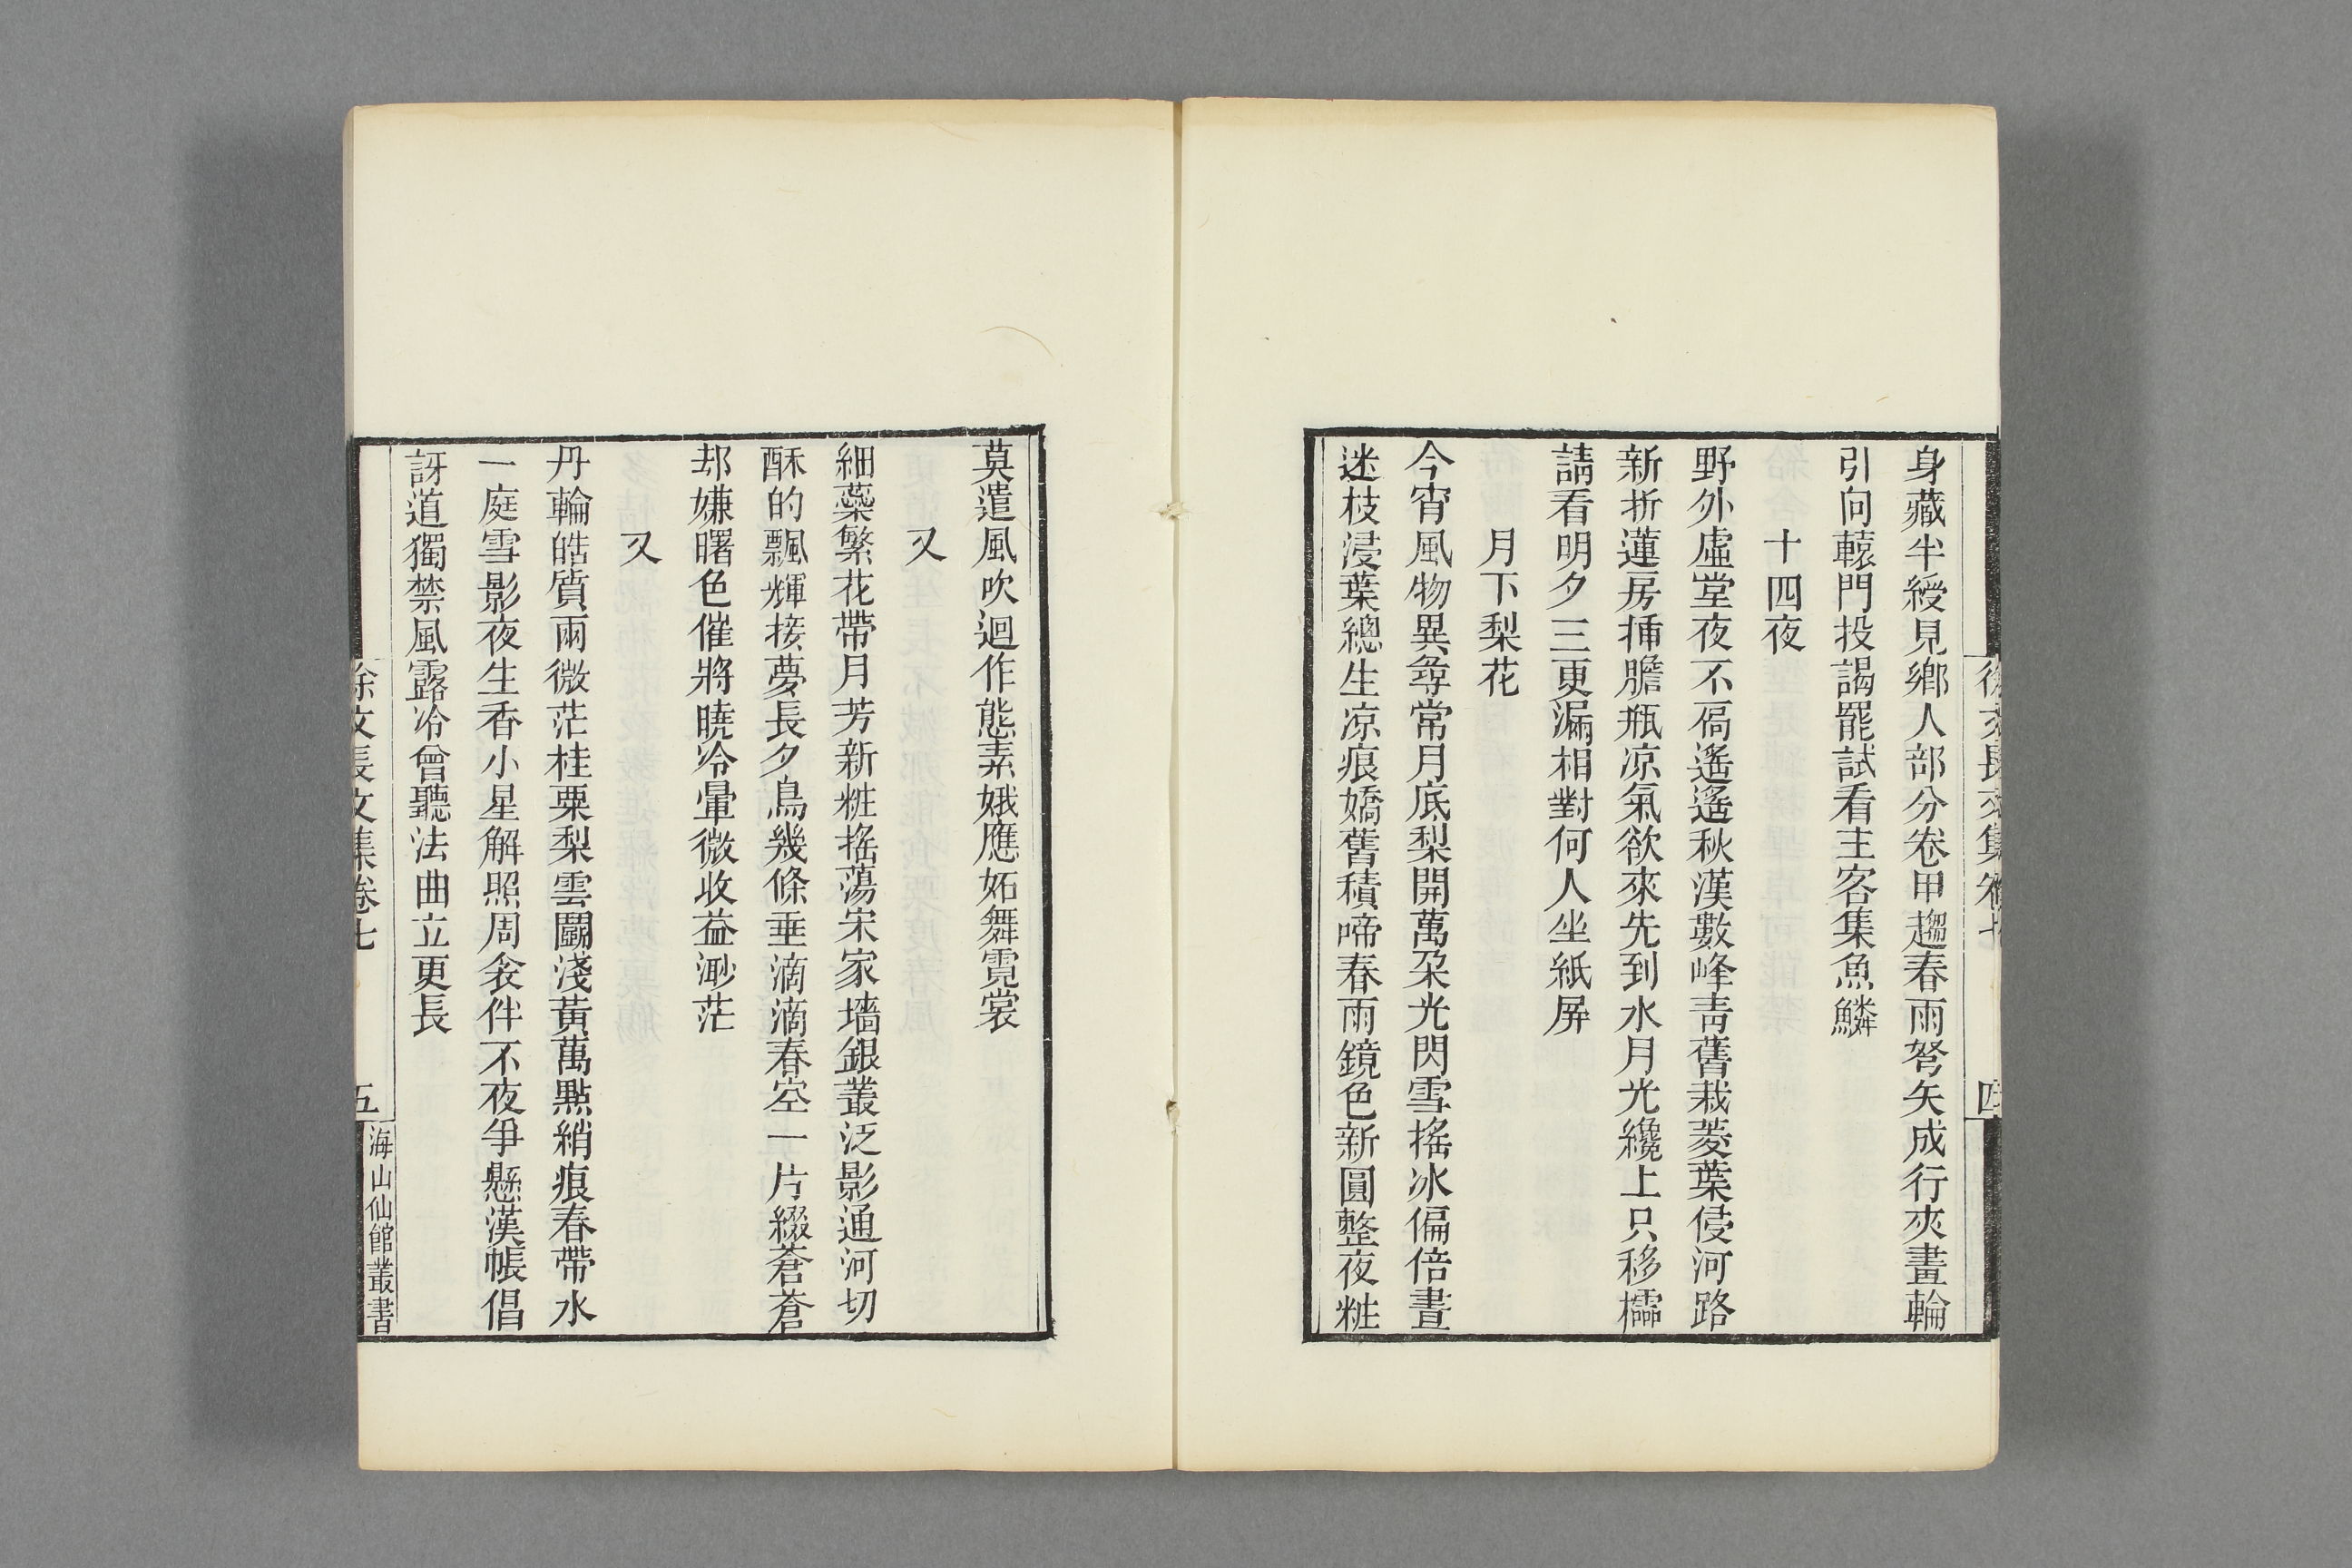 身藏半綬見鄉人部分卷甲趨春雨弩矢成行夾畫輪
引向轅門投謁罷試看主客集魚鱗
十四夜
野外虛堂夜不扃遙遙秋漢數峰靑舊栽菱葉侵河路
新折蓮房揷膽瓶凉氣欲來先到水月光纔上只移櫺
請看明夕三更漏相對何人坐紙屏
月下梨花
今宵風物異尋常月底梨開萬朶光閃雪搖冰偏倍晝
迷枝浸葉總生凉痕嬌舊積啼春雨鏡色新圓整夜粧
徐文長文集卷七
四
莫遣風吹迴作態素娥應妬舞霓裳
又
細蘂繁花帶月芳新粧搖蕩宋家墻銀叢泛影通河切
酥的飄輝接夢長夕鳥幾條垂滴滴春空一片綴蒼蒼
却嫌曙色催將曉冷暈微收益渺茫
又
丹輪皓質兩微茫桂粟梨雲鬭淺黃萬點綃痕春帶水
一庭雪影夜生香小星解照周衾伴不夜爭懸漢帳倡
訝道獨禁風露冷曾聽法曲立更長
徐文長文集卷七
五
海山仙館叢書